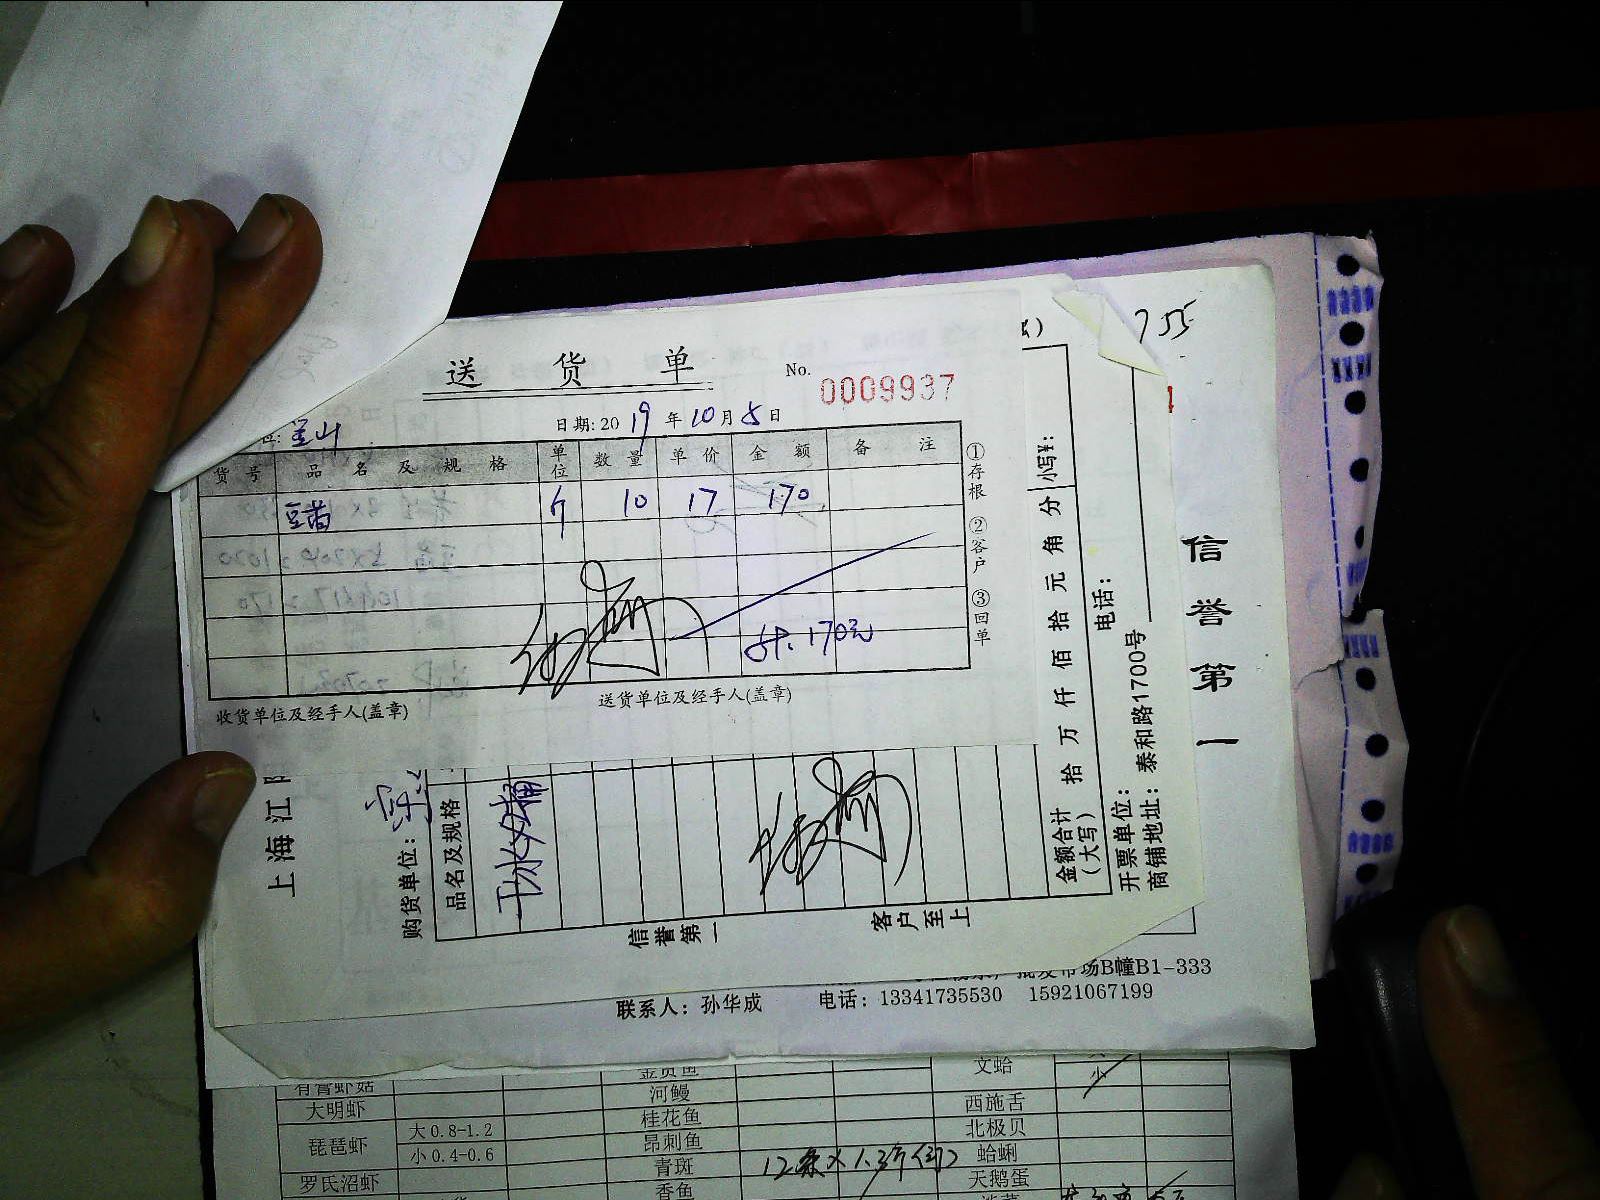 送 货 单 No. 0009937
日期: 2019 年 10 月 5 日
货 号 品 名 及 规 格 单位 数 量 单 价 金 额 备 注
豆苗 斤 10 17 170
计. 170元
收货单位及经手人(盖章) 送货单位及经手人(盖章)
①存根 ②客户 ③回单
755
信誉第一
上海江
购货单位:
品名及规格
小写¥:
金额合计(大写) 拾 万 仟 佰 拾 元 角 分
开票单位: 电话:
商铺地址: 泰和路1700号
信誉第一 客户至上
批发市场B幢B1-333
联系人: 孙华成 电话: 13341735530 15921067199
有膏虾菇 金贡鱼 文蛤 小
大明虾 河鳗 西施舌
琵琶虾 大 0.8-1.2 桂花鱼 北极贝
小 0.4-0.6 昂刺鱼 蛤蜊
青斑 12条×1.3斤 天鹅蛋
罗氏沼虾 香鱼